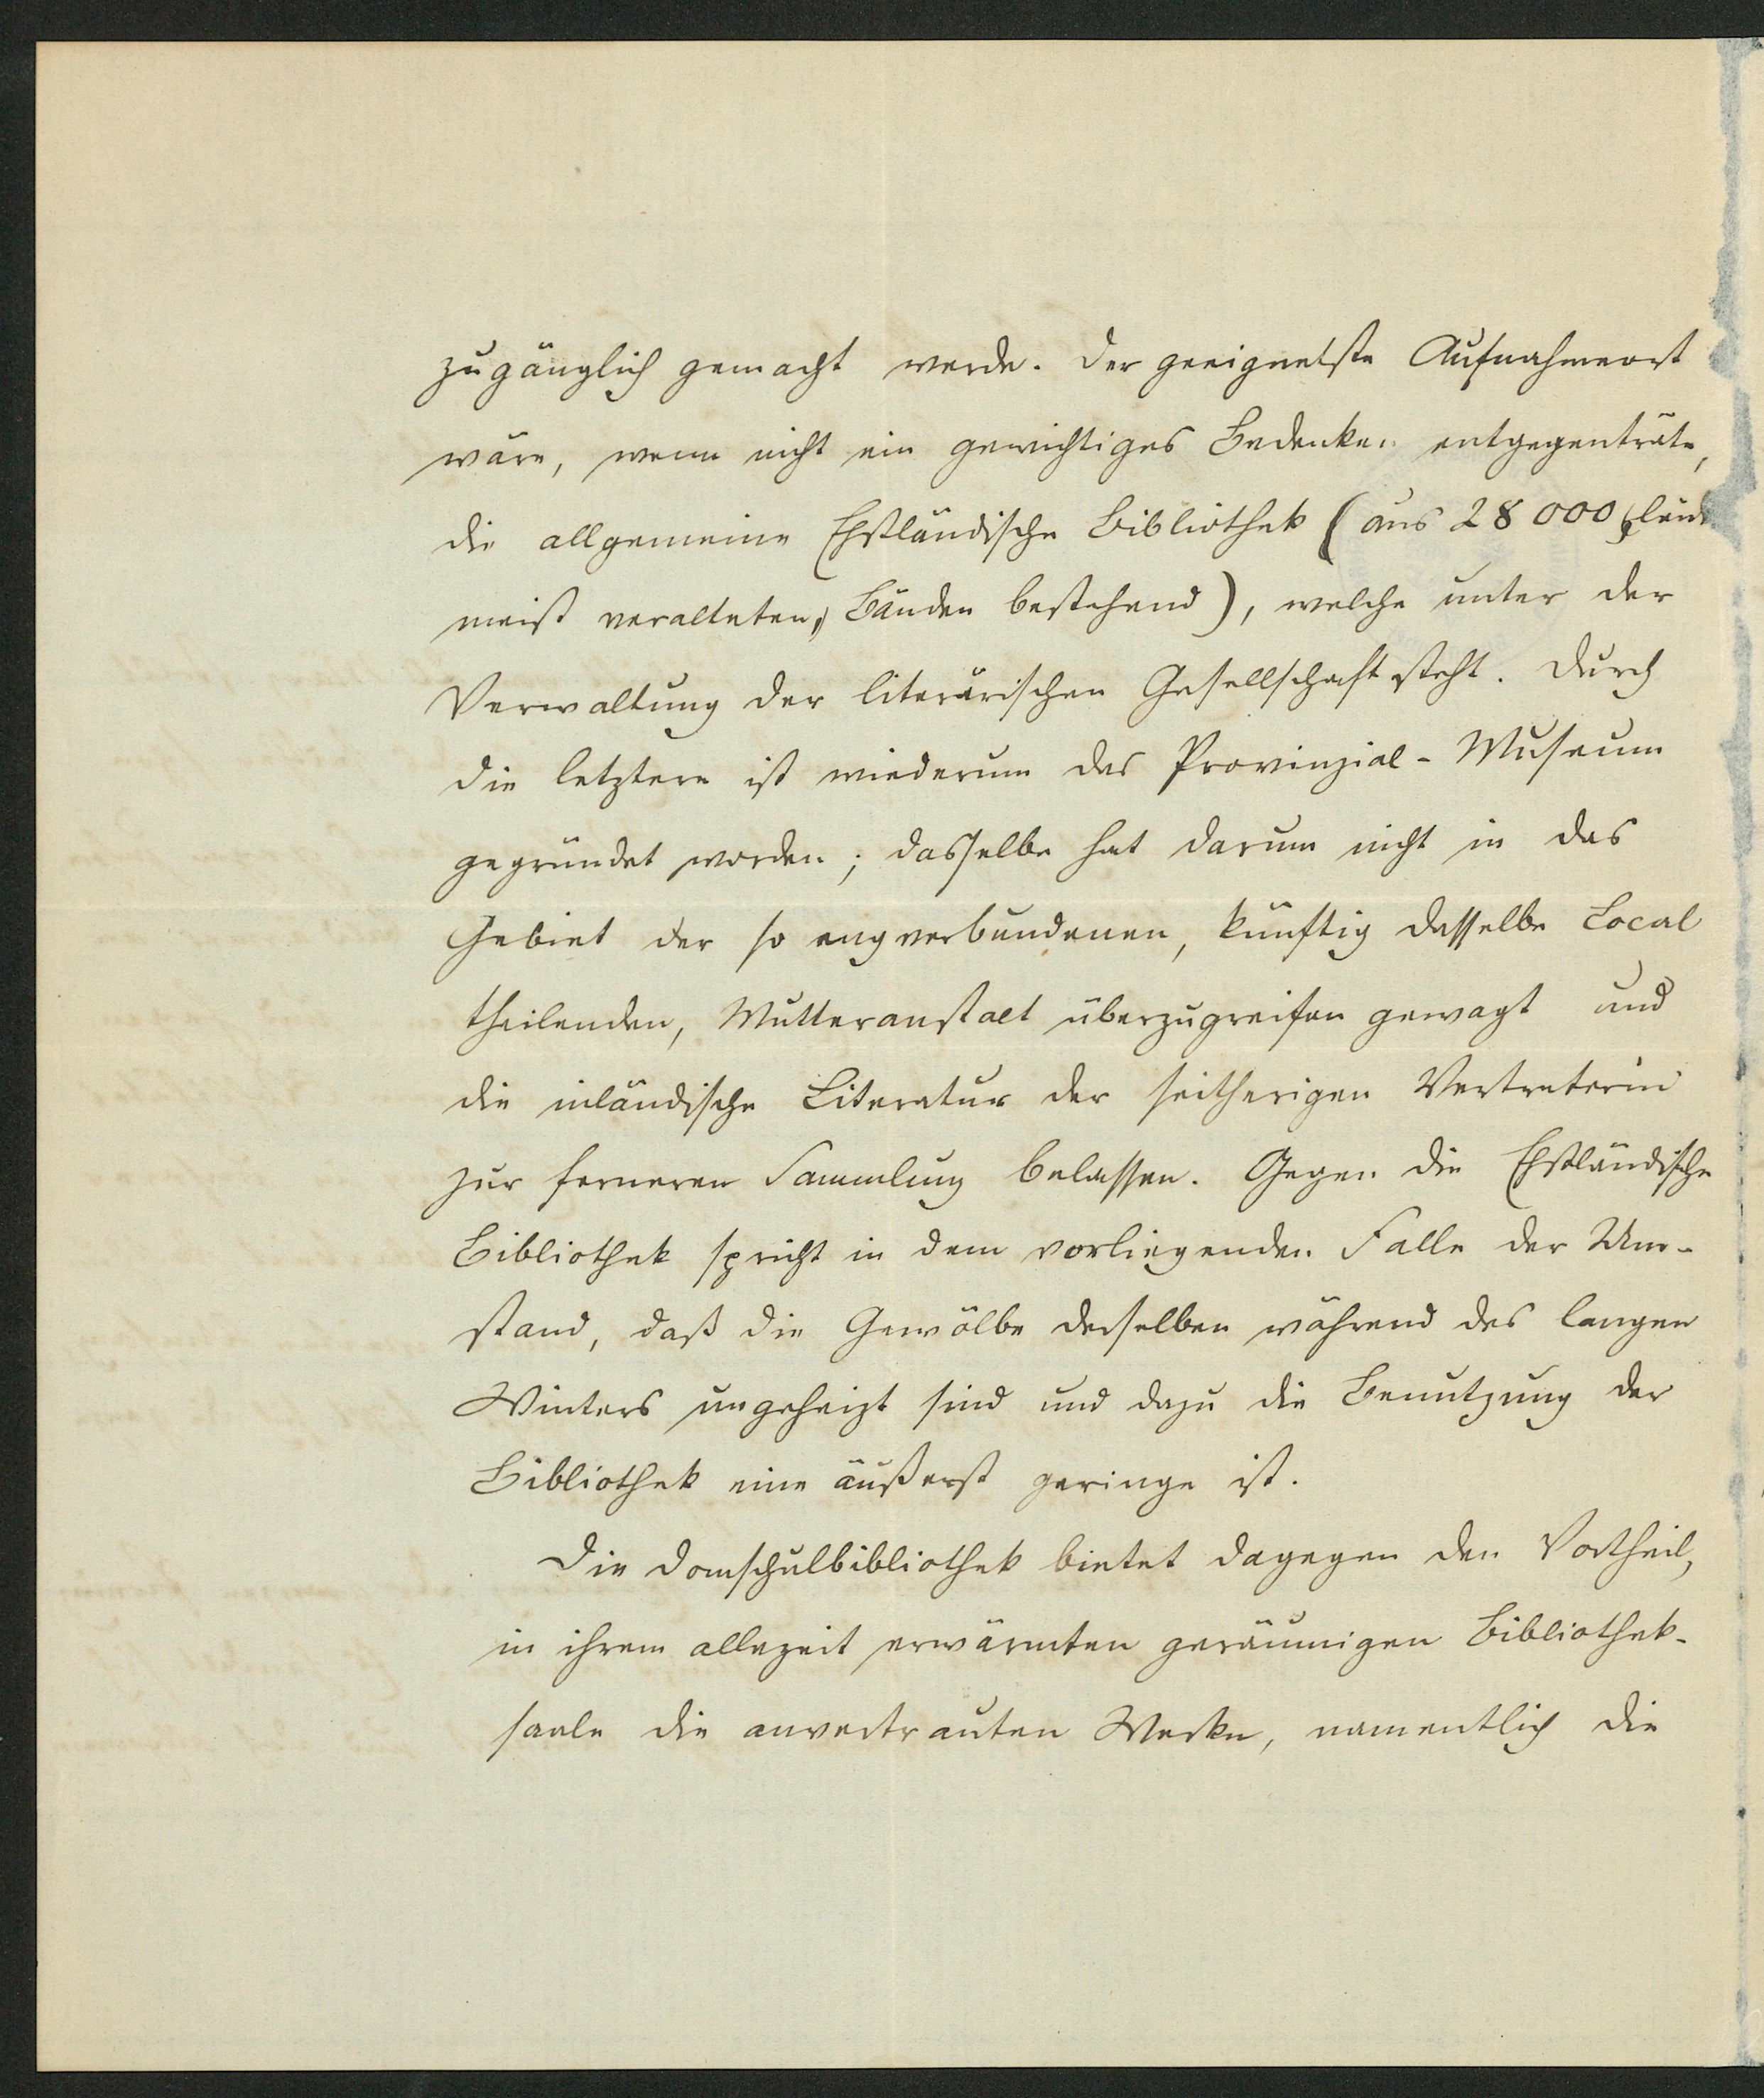 zugänglich gemacht werde. Der geeignetste Aufnahmeort
wäre, wenn nicht ein gewichtiges Bedenken entgegenträte,
die allgemeine Ehstländische Bibliothek (aus 28 000, leider
meist veralteten, Bänden bestehend), welche unter der
Verwaltung der literärischen Gesellschaft steht. Durch
die letztere ist wiederum das Provinzial-Museum
gegründet worden; dasselbe hat darum nicht in das
Gebiet der so engverbundenen, künftig dasselbe Local
theilenden, Mutteranstalt überzugreifen gewagt und
die inländische Literatur der seitherigen Vertreterin
zur ferneren Sammlung belassen. Gegen die Ehstländische
Bibliothek spricht in dem vorliegenden Falle der Um-
stand, daß die Gewölbe derselben während des langen
Winters ungeheizt sind und dazu die Benutzung der
Bibliothek eine äußerst geringe ist.
Die Domschulbibliothek bietet dagegen den Vortheil,
in ihrem allezeit erwärmten geräumigen Bibliothek-
saale die anvertrauten Werke, namentlich die